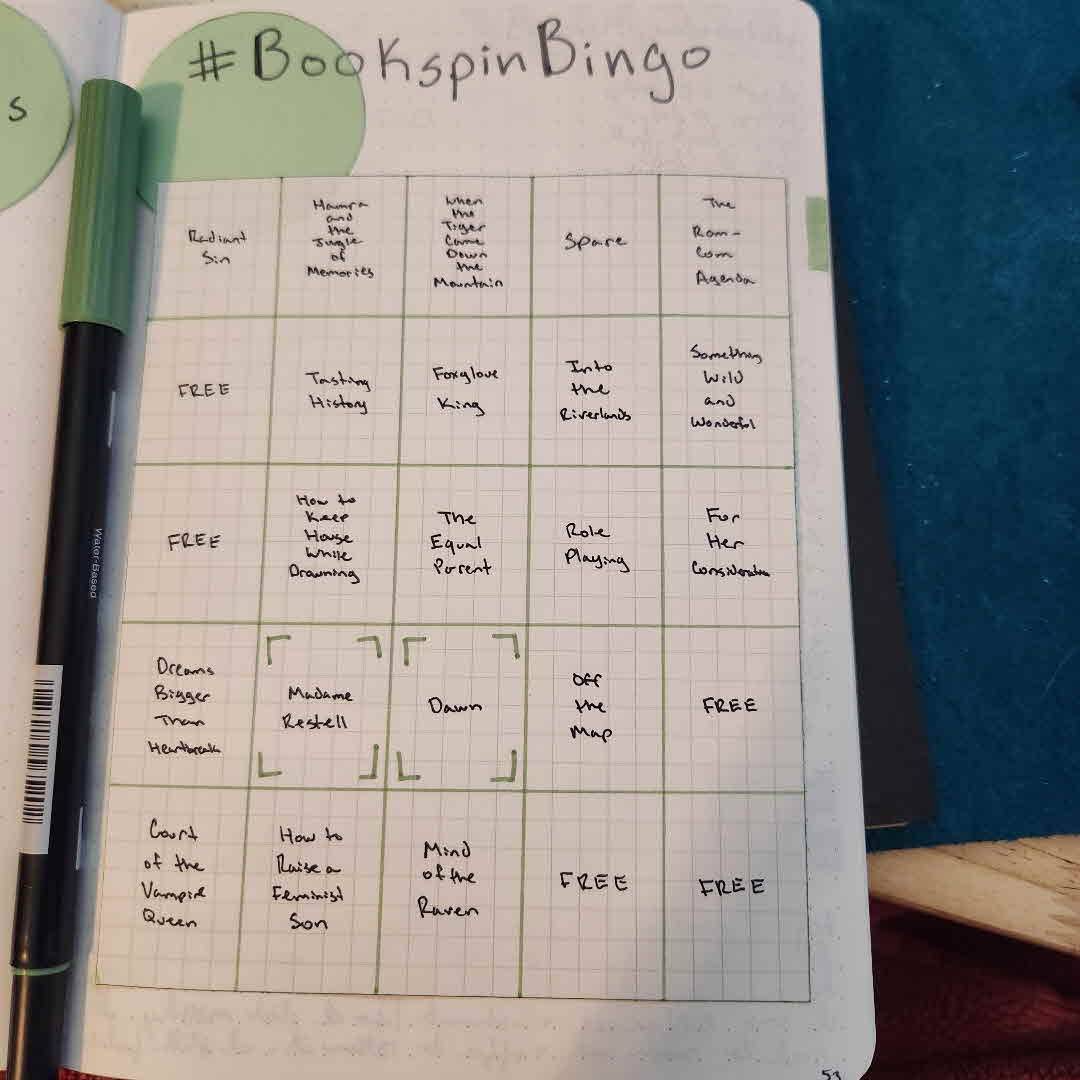 s
#BookspinBingo
Radiant
Sin
Hamra
and
the
Jungle
of
Memories
When
the
Tiger
Came
Down
the
Mountain
Spare
The
Rom-
Com
Agenda
FREE
Tasting
History
Foxglove
King
Into
the
Riverlands
Something
Wild
and
Wonderful
FREE
How to
Keep
House
While
Drowning
The
Equal
Parent
Role
Playing
For
Her
Consideration
Dreams
Bigger
Than
Heartbreak
Madame
Restell
Dawn
Off
the
Map
FREE
Court
of the
Vampire
Queen
How to
Raise a
Feminist
Son
Mind
of the
Raven
FREE
FREE
Water-Based
53